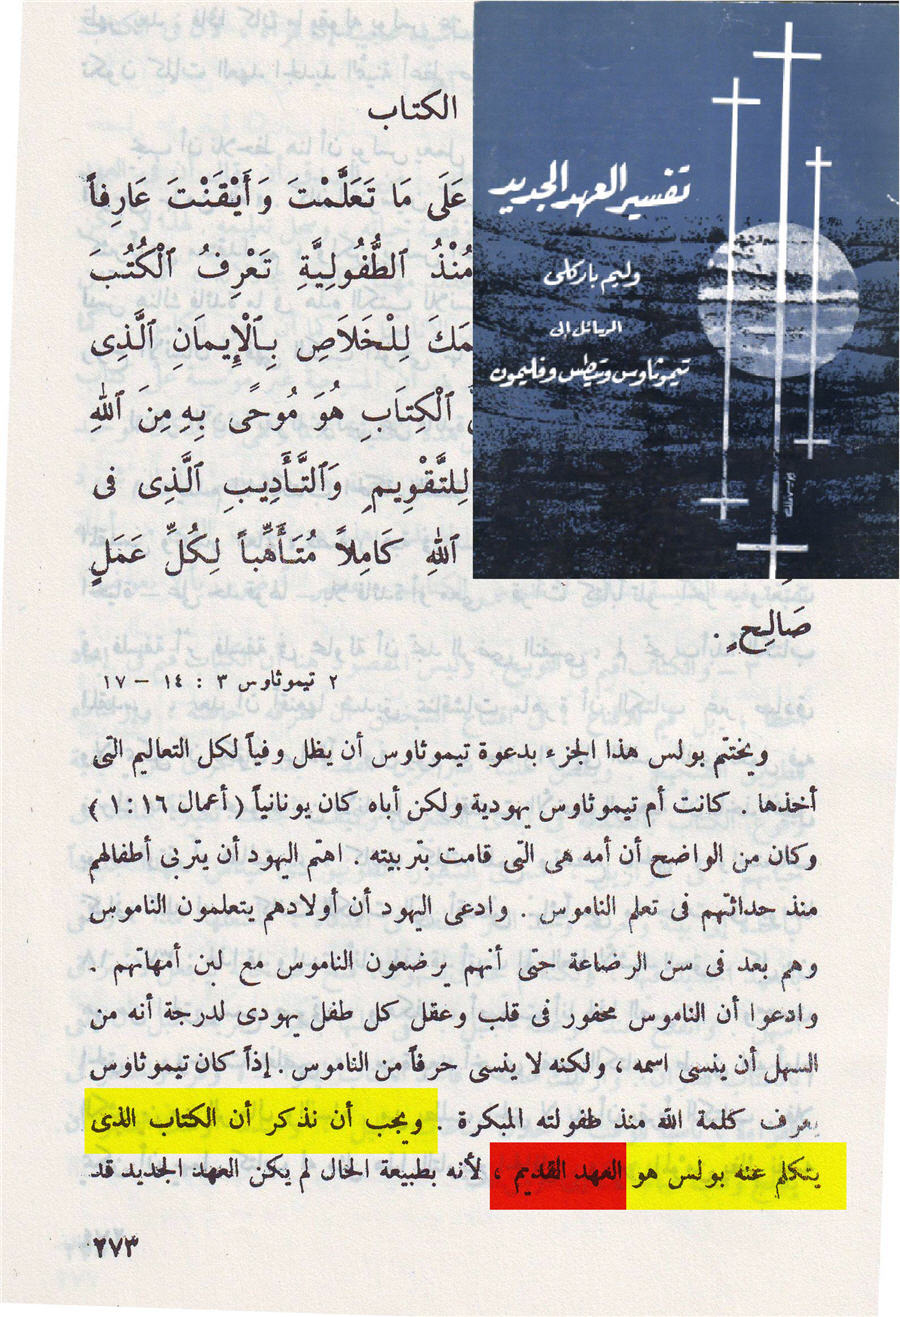 تفسير العهد الجديد
وليم باركلى
الرسائل إلى
تيموثاوس وتيطس وفليمون
الكتاب
عَلَى مَا تَعَلَّمْتَ وَأَيْقَنْتَ عَارِفاً
مُنْذُ ٱلطُّفُولِيَّةِ تَعْرِفُ ٱلْكُتُبَ
مَكَ لِلْخَلَاصِ بِٱلْإِيمَانِ ٱلَّذِى
ٱلْكِتَابِ هُوَ مُوحًى بِهِ مِنَ ٱللهِ
لِلتَّقْوِيمِ وَٱلتَّأْدِيبِ ٱلَّذِى فِى
ٱللهِ كَامِلاً مُتَأَهِّباً لِكُلِّ عَمَلٍ
صَالِحٍ .
٢ تيموثاوس ٣ : ١٤ – ١٧
ويختتم بولس هذا الجزء بدعوة تيموثاوس أن يظل وفياً لكل التعاليم التى
أخذها . كانت أم تيموثاوس يهودية ولكن أباه كان يونانياً ( أعمال ١٦ : ١ )
وكان من الواضح أن أمه هى التى قامت بتربيته . اهتم اليهود أن يتربى أطفالهم
منذ حداثتهم فى تعلم الناموس . وادعى اليهود أن أولادهم يتعلمون الناموس
وهم بعد فى سن الرضاعة حتى أنهم يرضعون الناموس مع لبن أمهاتهم .
وادعوا أن الناموس محفور فى قلب وعقل كل طفل يهودى لدرجة أنه من
السهل أن ينسى اسمه ، ولكنه لا ينسى حرفاً من الناموس . إذاً كان تيموثاوس
يعرف كلمة الله منذ طفولته المبكرة . ويجب أن نذكر أن الكتاب الذى
يتكلم عنه بولس هو العهد القديم ، لأنه بطبيعة الحال لم يكن العهد الجديد قد
٢٧٣